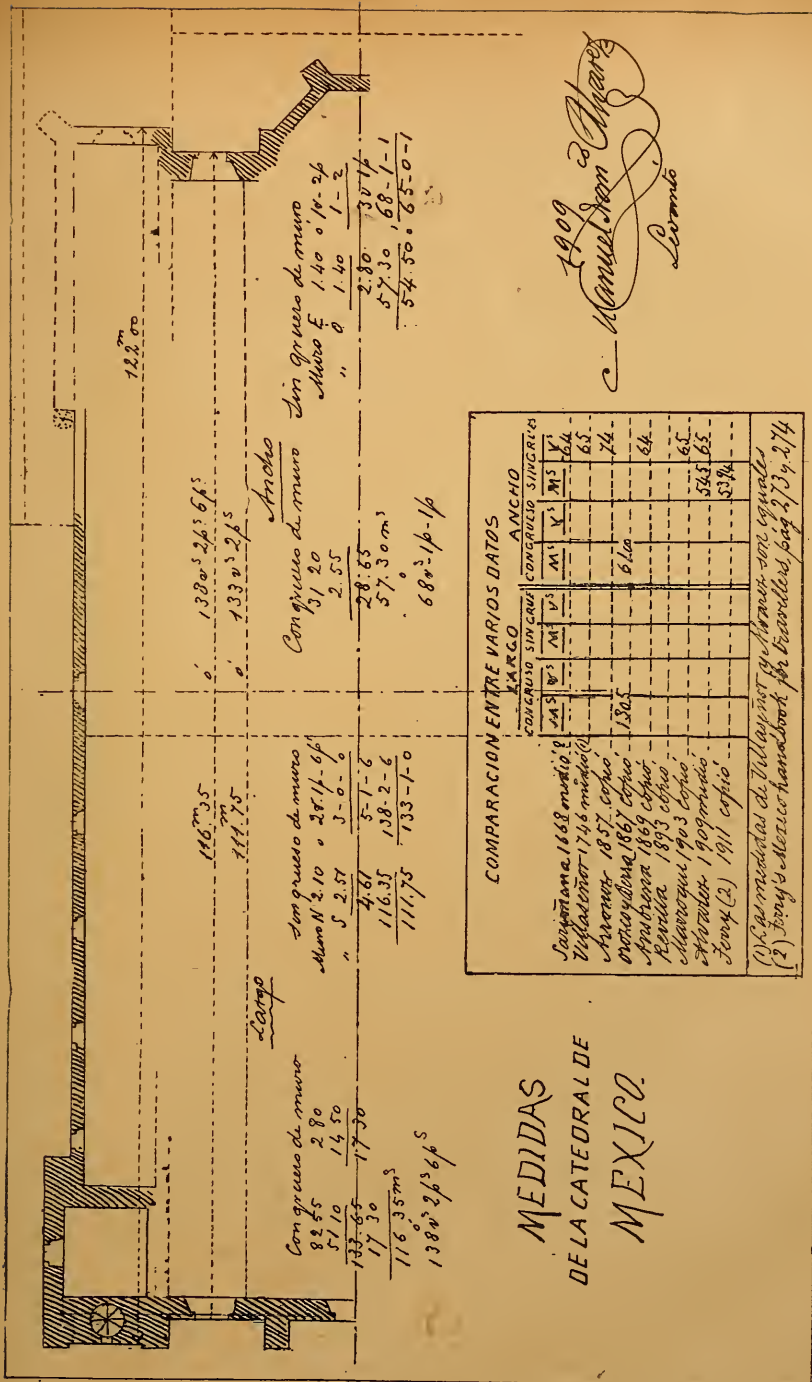 122 m 00
116 m 35 ó 138 vs 2 ps 6 ps
111 m 75 ó 133 vs 2 ps
Largo
Con grueso de muro
82 55 2 80
51 10 14 50
133.65 17 30
17 30
116 35 ms
ó
138 vs 2 ps 6 ps
Sin grueso de muro
Muro N 2.10 o 2v.1p-6p
" S 2.51 3-0-0
4.61 5-1-6
116.35 138-2-6
111.75 133-1-0
Ancho
Con grueso de muro
31 20
2.55
28.65
57.30 ms
ó
68 vs-1p-1p
Sin grueso de muro
Muro E 1.40 o 1v-2p
" O 1.40 1-2
2.80 3v-1p
57.30 68-1-1
54.50 o 65-0-1
MEDIDAS
DE LA CATEDRAL DE
MEXICO.
COMPARACION ENTRE VARIOS DATOS
LARGO ANCHO
CON GRUSO SIN GRUE CON GRUESO SIN GRUES
Ms Vs Ms Vs Ms Vs Ms Vs
Sariñana 1668 midió 64
Villaseñor 1746 midió (1) 65
Arronoz 1857 copió 74
Orozco y Berra 1867 copió 130.5 61.00
1869 copió 64
Revilla 1893 copió
Marroqui 1903 copió 65
Alvarez 1909 midió 54.5 65
Terry (2) 1911 copió 53.94
(1) Las medidas de Villaseñor y Alvarez son iguales
(2) Terry's Mexico handbook for travellers, pág 273 y 274
1909
Manuel Fran co Alvarez
Levantó